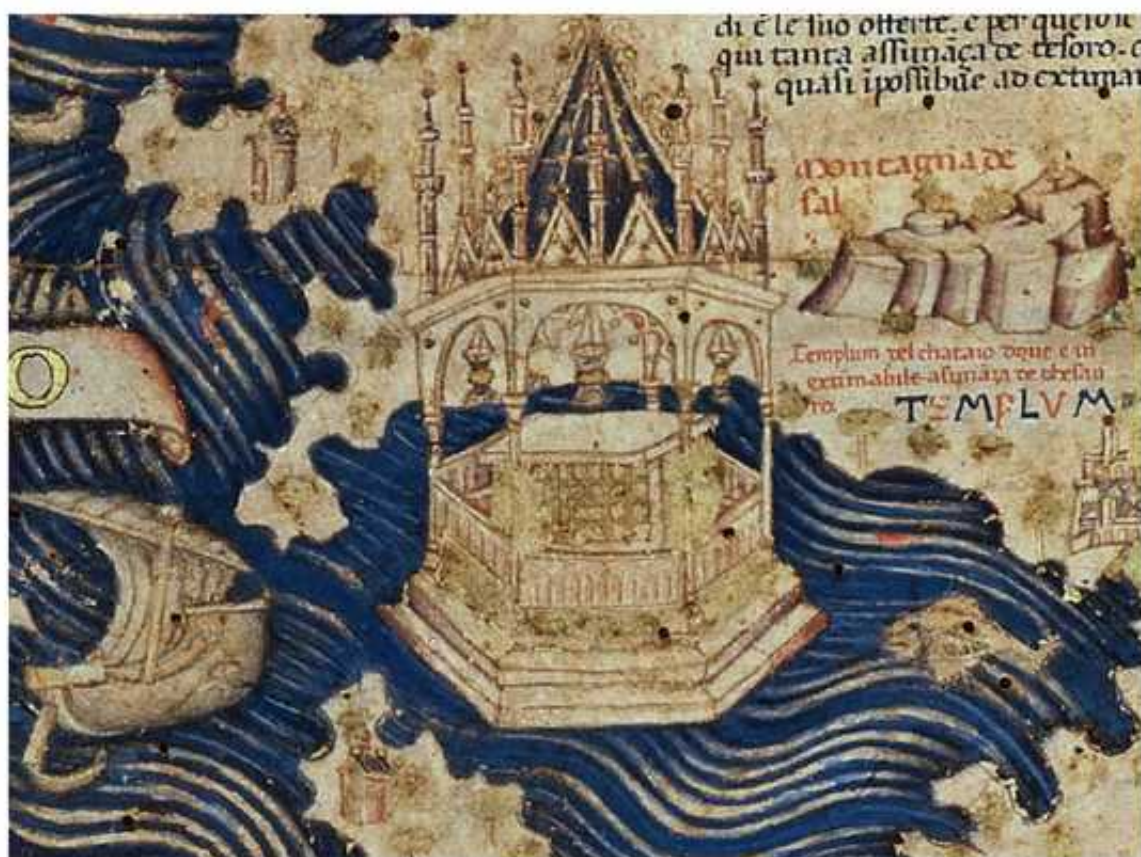 di e le suo offerte. e per questo e
qui tanta assunaça de tesoro.
quasi ipossibile ad extimar
Montagna de
sal
O
Templum del chataio dque e in
extimabile asunaça de thesau
ro.
TEMPLVM